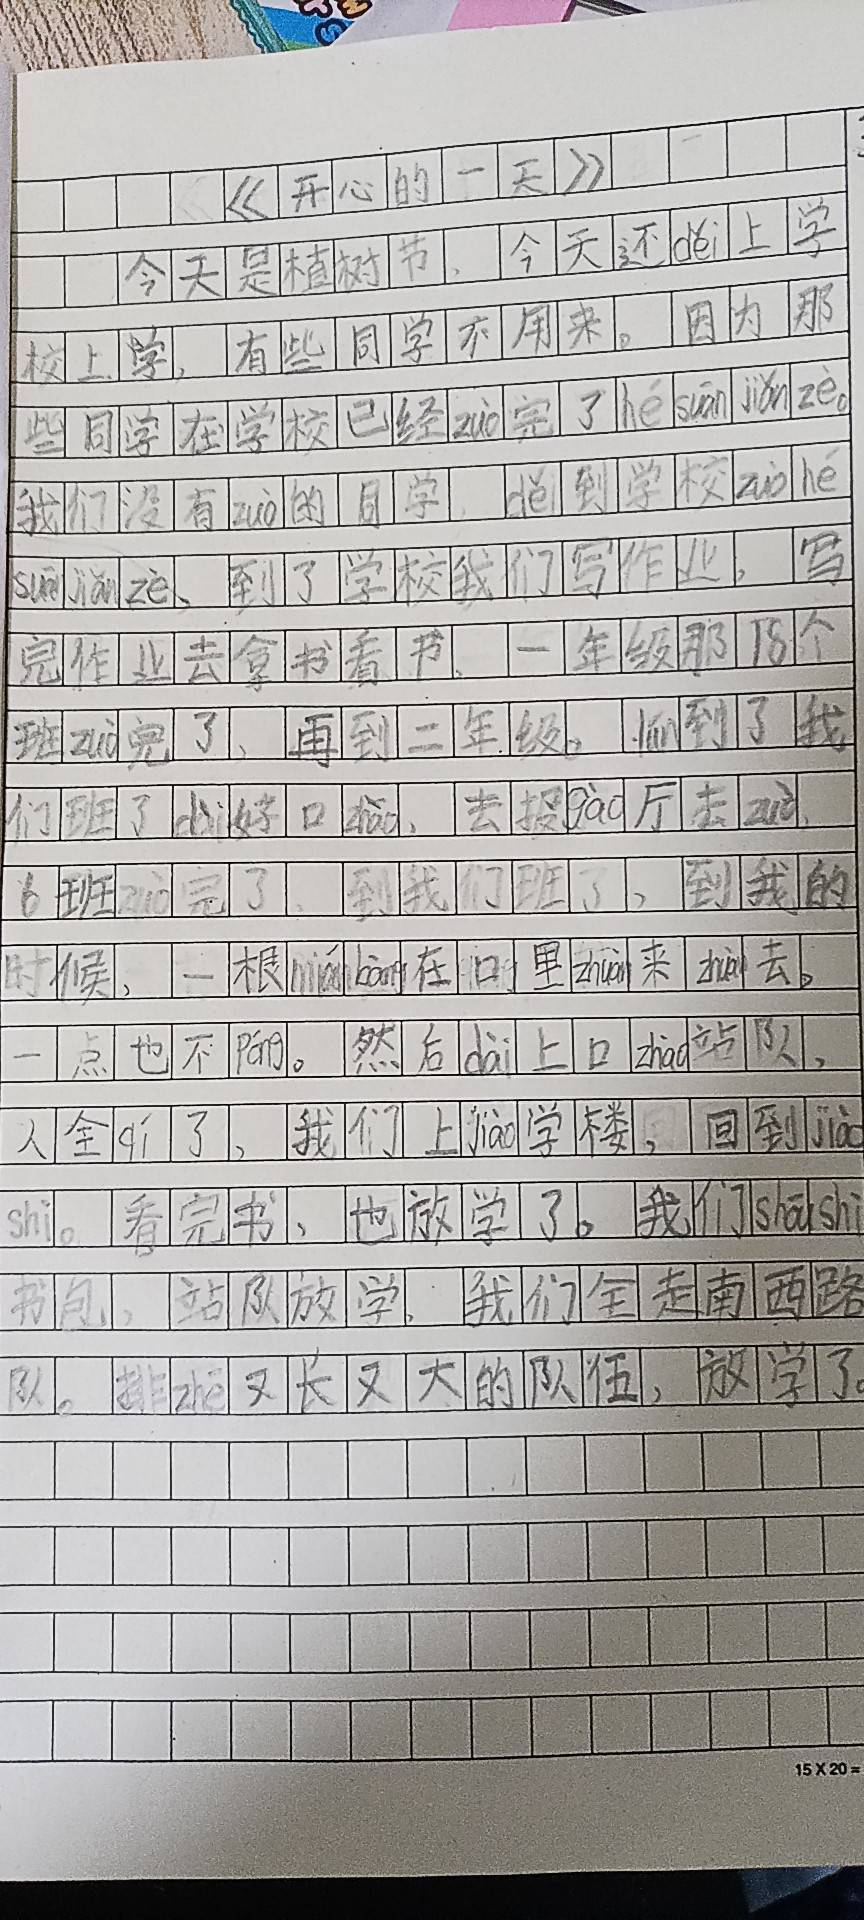 《开心的一天》
今天是植树节、今天还děi上学
校上学，有些同学不用来。因为那
些同学在学校已经zuò完了hé suān jiǎn zè。
我们没有zuò的同学、děi到学校zuò hé
suān jiǎn zè、到了学校我们写作业，写
完作业去拿书看书、一年级那18个
班zuò完了、再到二年级。lún到了我
们班了dài好口zhào、去报gào厅去zuò、
6班zuò完了、到我们班了，到我的
时候、一根mián bàng在口里zhuàn来zhuàn去。
一点也不péng。然后dài上口zhào站队，
人全qí了、我们上jiào学楼，回到jiào
shì。看完书、也放学了。我们shōu shí
书包，站队放学、我们全走南西路
队。排zhē又长又大的队伍，放学了。
15 X 20 =